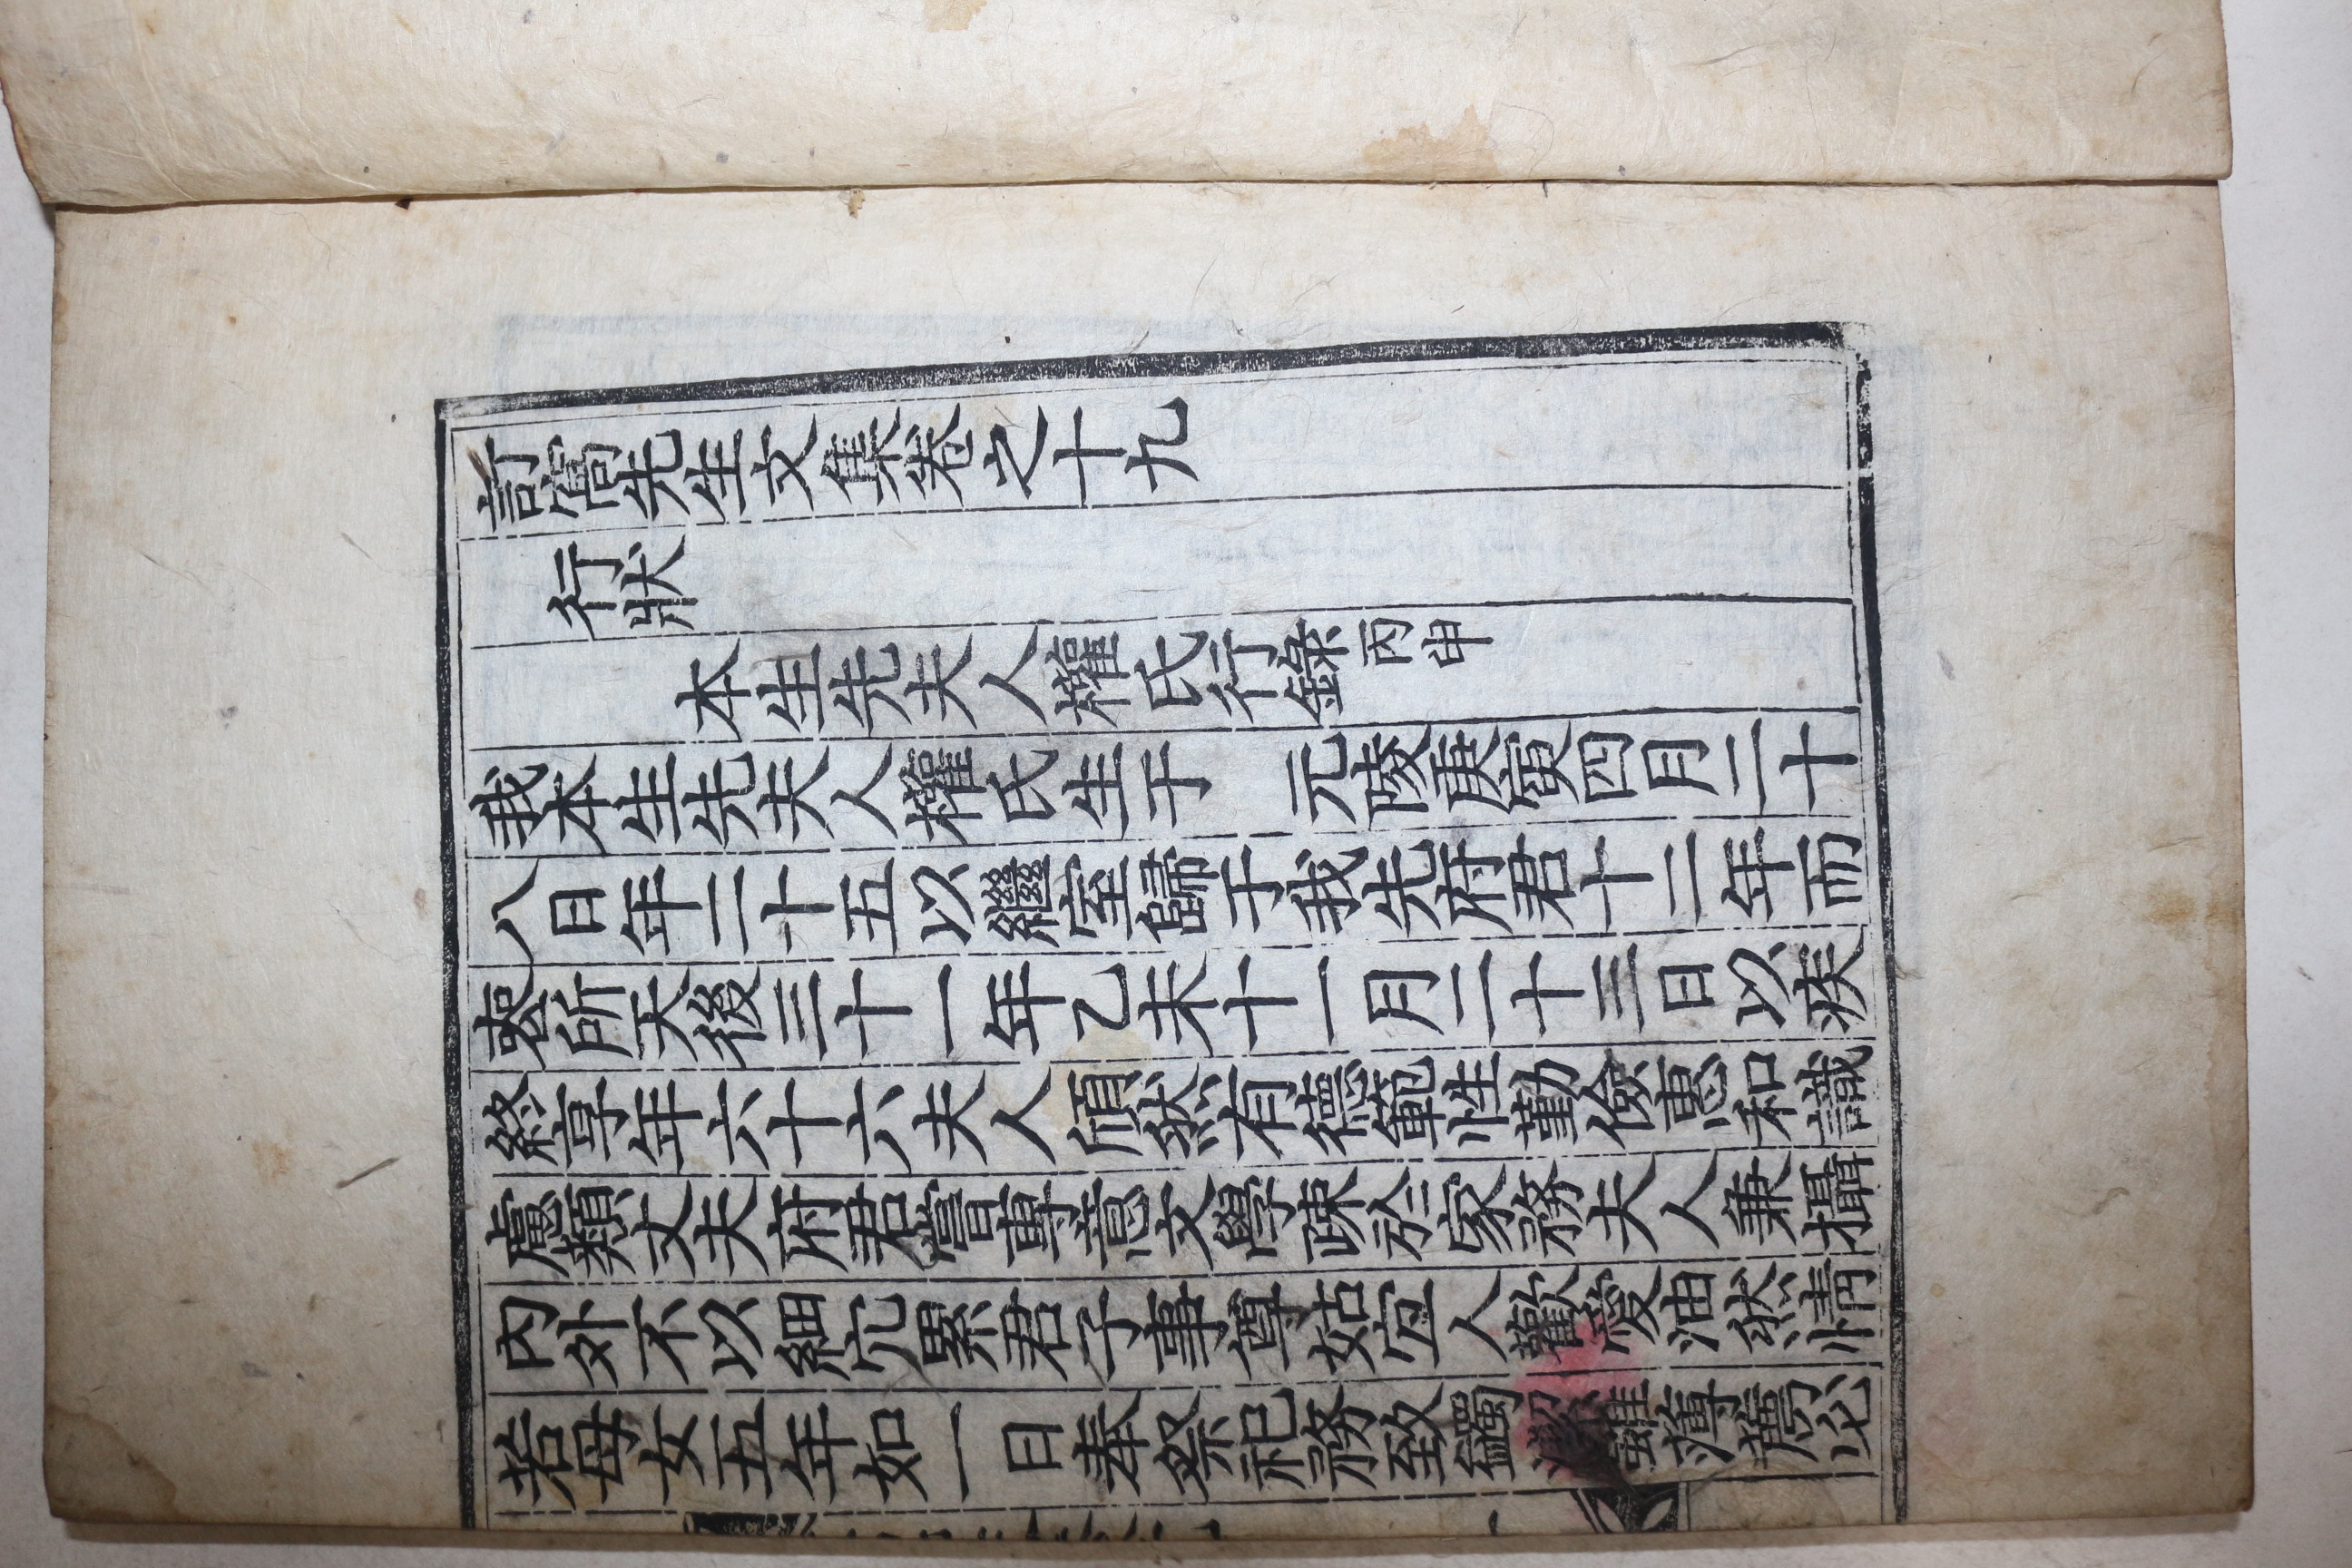 訂窩先生文集卷之十九
行狀
本生先夫人權氏行錄丙申
我本生先夫人權氏生于 元陵庚寅四月二十
八日年二十五以繼室歸于我先府君十二年而
喪所天後三十一年乙未十一月二十三日以疾
終享年六十六夫人頎然有德範性勤儉惠和識
慮類丈夫府君嘗專意文學疎於家務夫人兼攝
內外不以細宂累君子事尊姑宜人歡愛油然情
若母女五年如一日奉祭祀務致蠲潔雖薄薦必